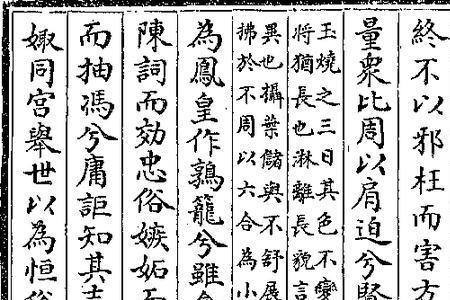 終不以邪枉而害方
量衆比周以肩迫兮賢
玉燒之三日其色不變
將猶長也淋離長貌言
異也攝葉儲與不舒展
拂於不周以六合為小
為鳳皇作鶉籠兮雖
陳詞而効忠俗嫉妬而
而抽馮兮庸詎知其吉
娵同宮舉世以為恒俗